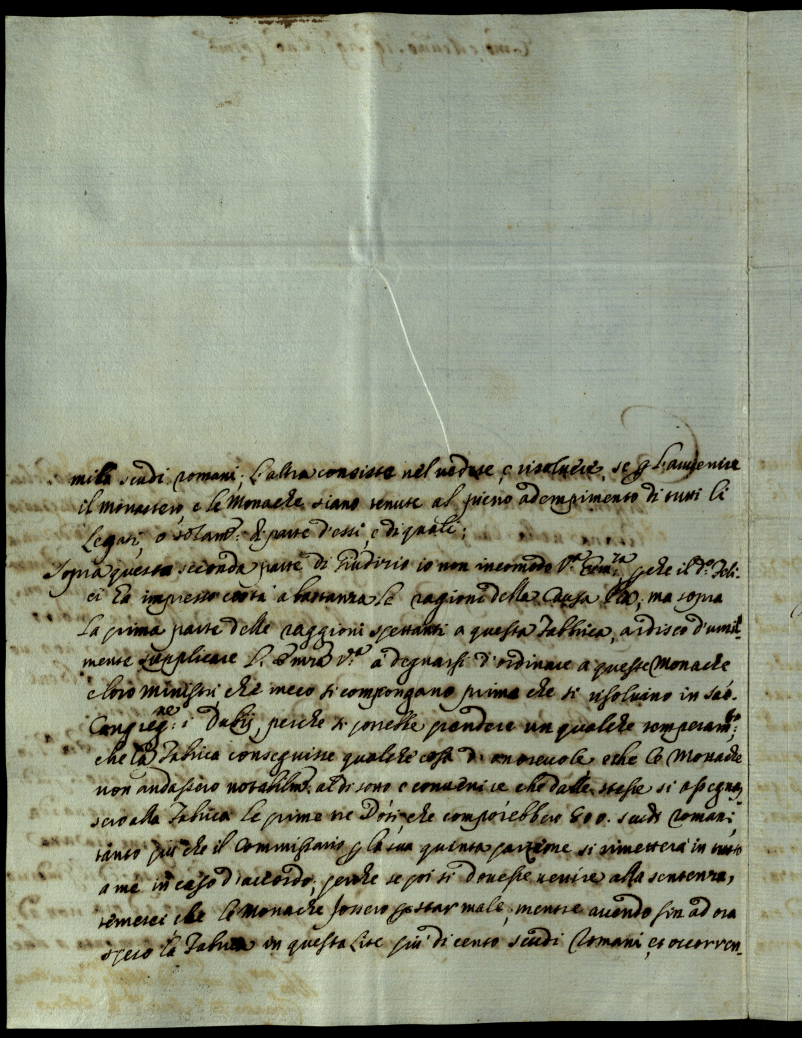 mila scudi romani; L'altra consiste nel vedere, e risolvere, se p L'avvenire
il monastero, e le Monache siano tenute al pieno adempimento di tutti li
Legati, o solam.: di parte d'essi, e di quali;
Sopra questa seconda parte di Giudizio io non incomodo V.ra Em.za, perche il d.o Feli-
ci ha impresso costà a bastanza le ragioni della Causa, ma sopra
La prima parte delle raggioni spettanti a questa Fabbrica, ardisco d'umil-
mente supplicare L'Em.za V.ra a degnarsi d'ordinare a queste Monache
e loro ministri che meco si compongano prima che si risolvino in
Congreg.ne: i Dubij, perche si potrebbe prendere un qualche temperam.to;
che la Fabrica conseguisse qualche cosa d'onorevole e che le Monache
non andassero notabilm.: al di sotto e convenire che dalle stesse si assegnas-
sero alla Fabrica le prime tre Doti, che comporebbero 800. scudi romani;
tanto più che il Commissario p la sua quinta parzione si rimetterà in tutto
a me in caso d'accordo; perche se poi si dovesse venire alla sentenza,
temerei che le Monache fossero p star male, mentre avendo fin ad ora
speso la Fabrica in questa Lite più di cento scudi romani, et occorren-